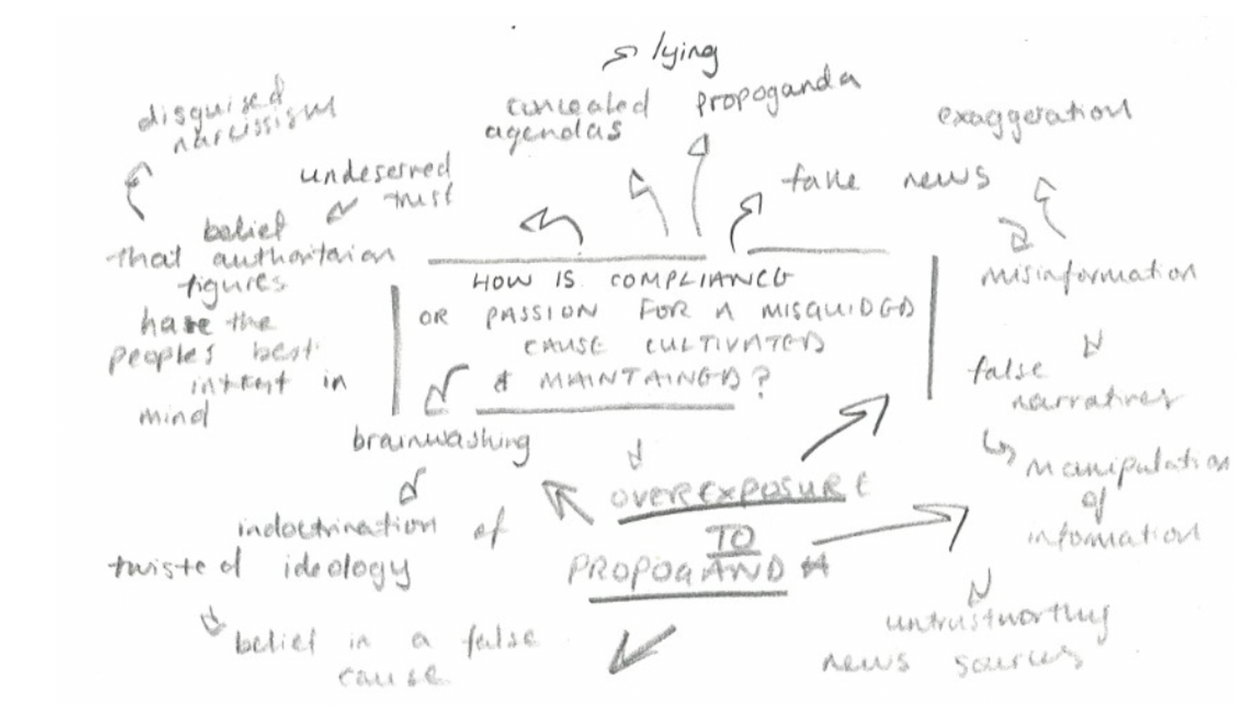 lying
disguised
narcissism
concealed
agendas
propoganda
exaggeration
undeserved
trust
fake news
belief
that authoritarian
figures
have the
people's best
intrest in
mind
HOW IS COMPLIANCE
OR PASSION FOR A MISGUIDED
CAUSE CULTIVATED
& MAINTAINED?
misinformation
false
narratives
manipulation
of
information
brainwashing
indoctrination of
twisted ideology
belief in a false
cause
OVEREXPOSURE
TO
PROPOGANDA
untrustworthy
news sources